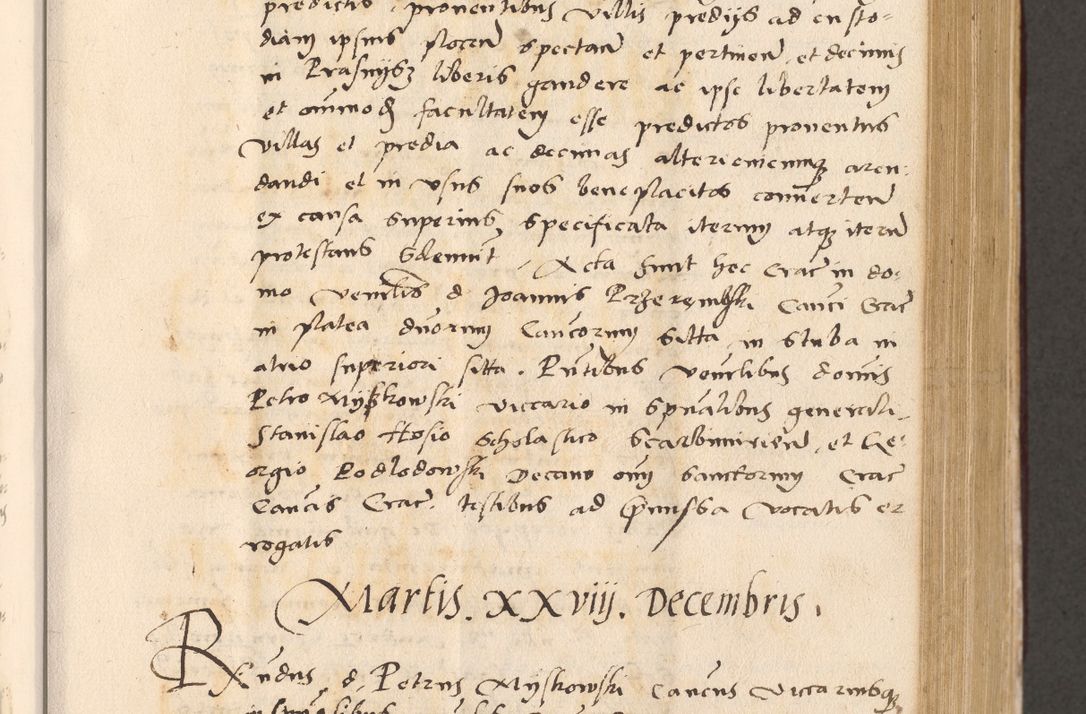 predictis, proventibus villis prediis ad custo-
diam ipsius plocen spectan et pertinen, et decimis
in Prasnysz liberis gaudere ac ipse libertatem
et omnimodam facultatem esse predictos proventus
villas et predia ac decimas alteri cuicumque aren-
dandi et in usus suos beneplacitos convertendi
ex causa superius specificata iterum atque iterum
protestans solemnit. Acta sunt hec Crac in do-
mo Venerlis d Joannis Przerembski Canci Crac
in platea duorum Cancorum sitta in stuba in
atrio superiori sitta. Pntibus venerlibus dominis
Petro Myskowski viccario in spnalibus generali
Stanislao Hosio Scholastico Scarbimirien, et Ge-
orgio Podlodowski Decano omnium Sanctorum Crac
Cancis Crac. testibus ad premissa vocatis et
rogatis
Martis. XXviij. Decembris.
Rxundus d. Petrus Myskowski Cancus Viccariusque